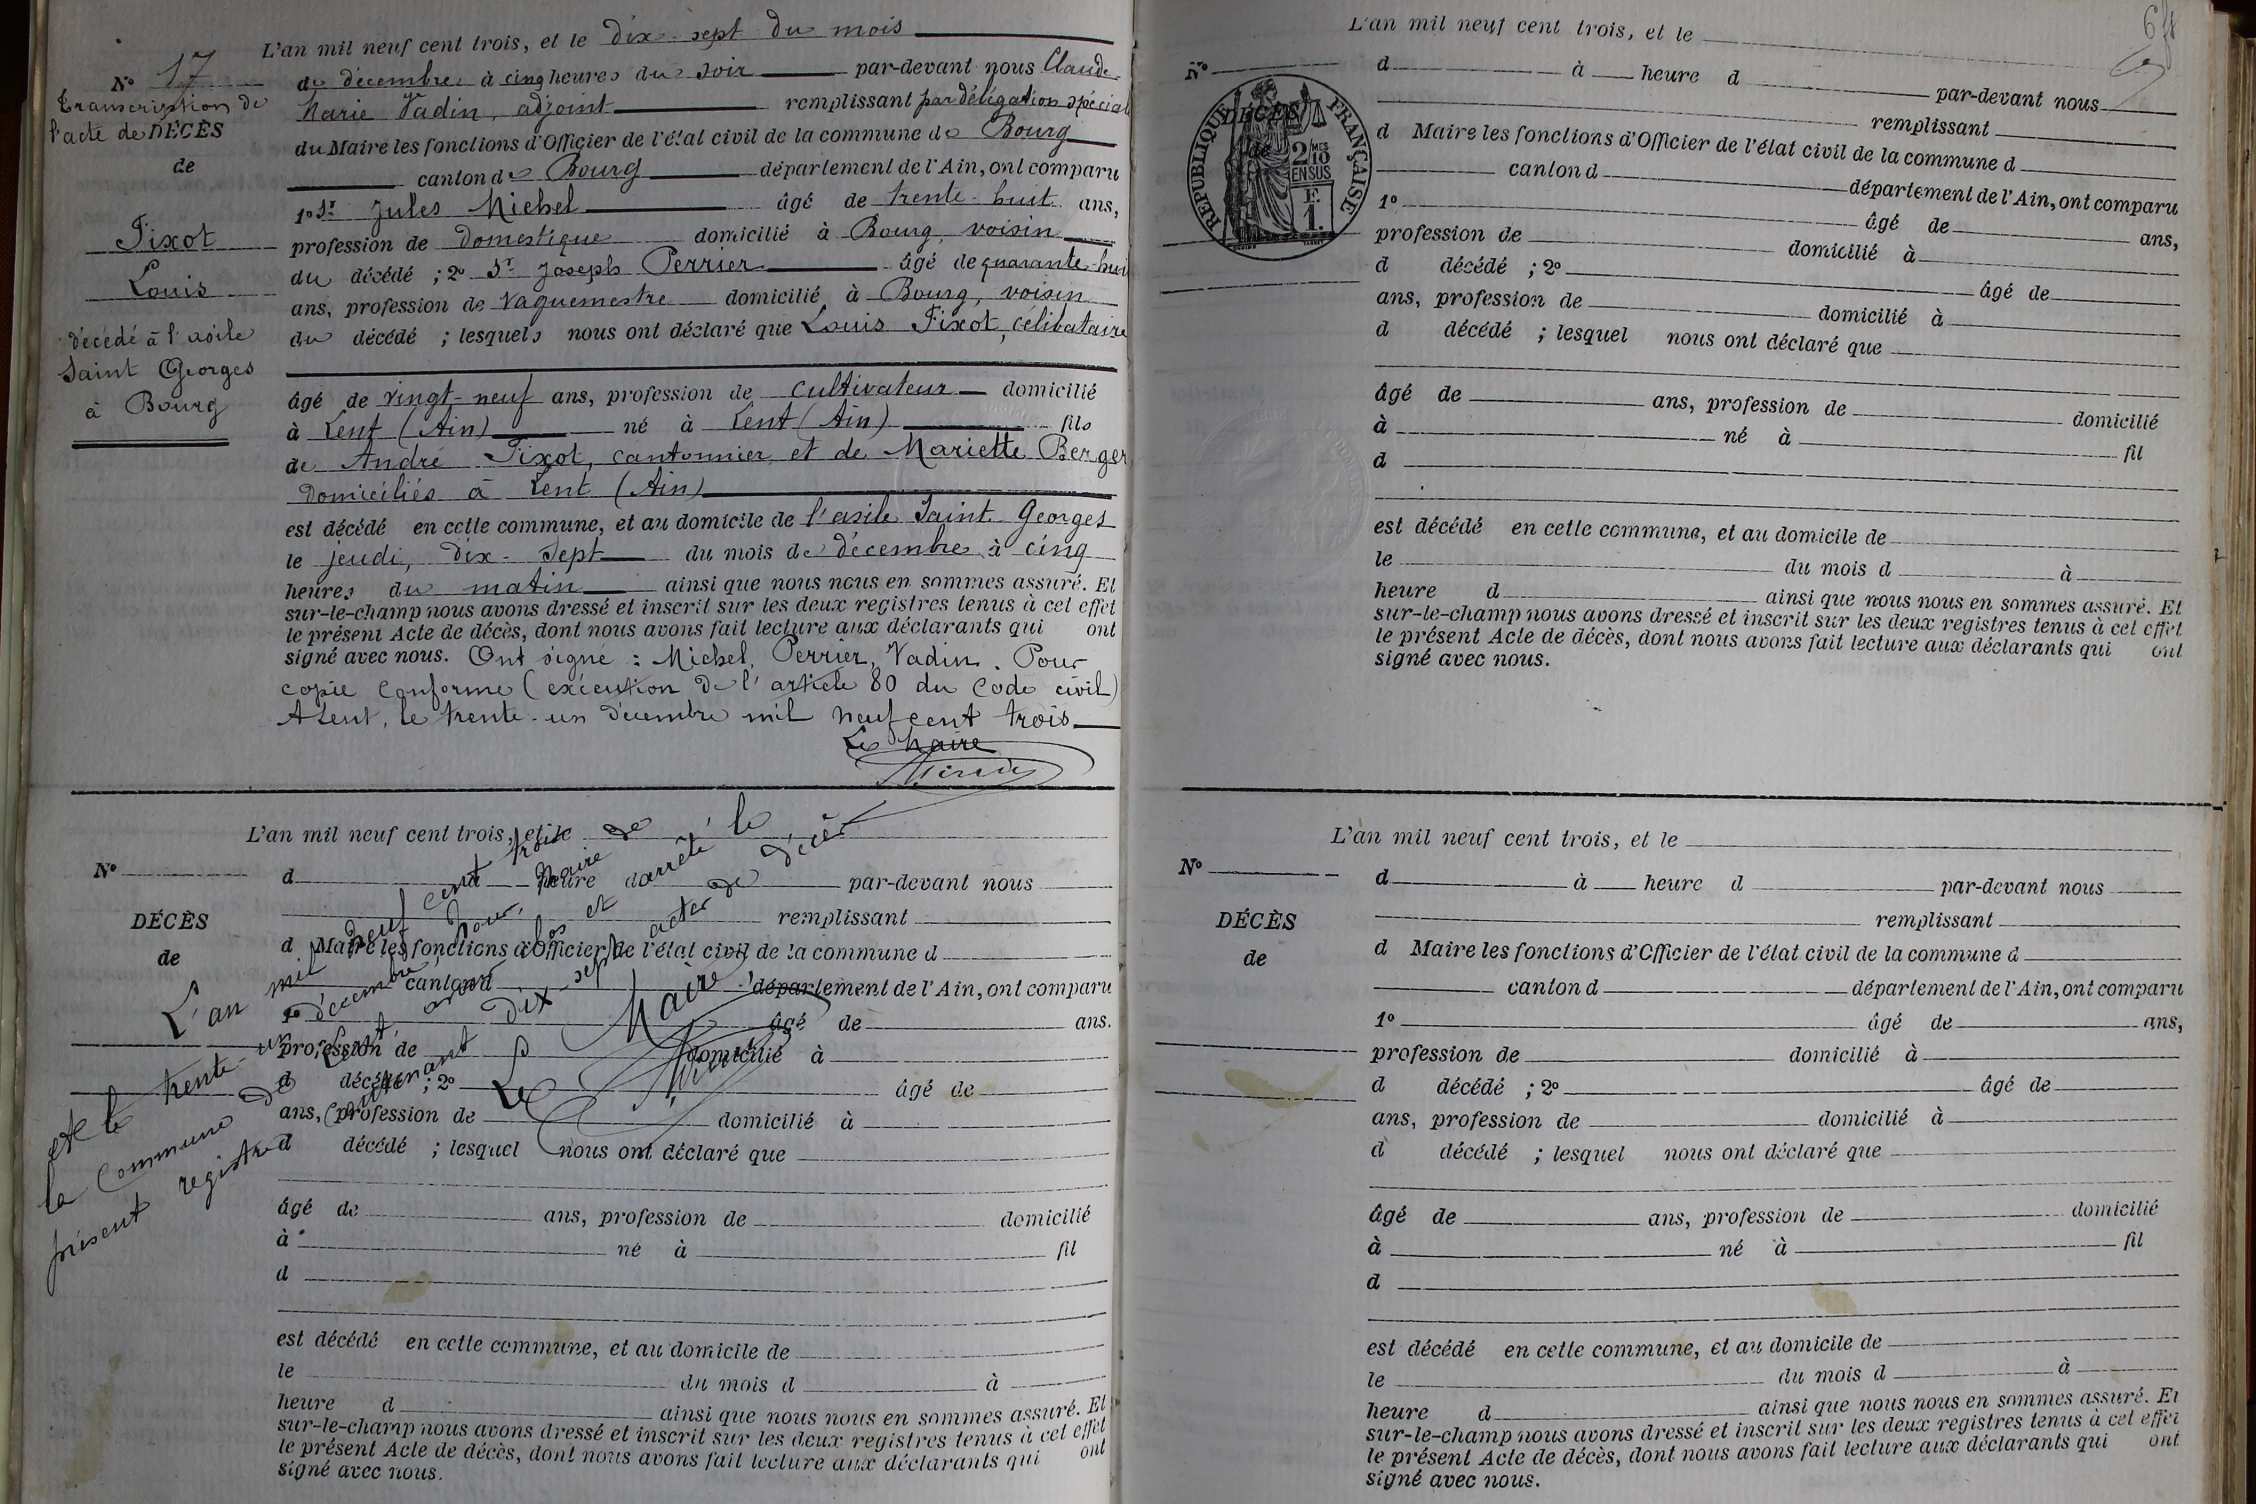 L'an mil neuf cent trois, et le dix-sept du mois
N° 17
de décembre à cinq heures du soir par-devant nous Claude
Marie Vadin, adjoint remplissant par délégation spéciale
Transcription de
l'acte de DÉCÈS
de
du Maire les fonctions d'Officier de l'état civil de la commune de Bourg
canton de Bourg département de l'Ain, ont comparu
1° Sr Jules Michel âgé de trente-huit ans,
Tixot
Louis
décédé à l'asile
Saint Georges
à Bourg
profession de domestique domicilié à Bourg, voisin
du décédé ; 2° Sr Joseph Perrier âgé de quarante-huit
ans, profession de vaguemestre domicilié à Bourg, voisin
du décédé ; lesquels nous ont déclaré que Louis Tixot, célibataire
âgé de vingt-neuf ans, profession de cultivateur domicilié
à Lent (Ain) né à Lent (Ain) fils
de André Tixot, cantonnier et de Mariette Berger
domiciliés à Lent (Ain)
est décédé en cette commune, et au domicile de l'asile Saint Georges
le jeudi, dix-sept du mois de décembre à cinq
heures du matin ainsi que nous nous en sommes assuré. Et
sur-le-champ nous avons dressé et inscrit sur les deux registres tenus à cet effet
le présent Acte de décès, dont nous avons fait lecture aux déclarants qui ont
signé avec nous. Ont signé : Michel, Perrier, Vadin. Pour
copie conforme (exécution de l'article 80 du Code civil)
A Lent, le trente-un décembre mil neuf cent trois
Le Maire
L'an mil neuf cent trois, et le
N°
d à heure d par-devant nous
remplissant
DÉCÈS
de
d Maire les fonctions d'Officier de l'état civil de la commune d
canton d département de l'Ain, ont comparu
1° âgé de ans.
profession de domicilié à
d décédé ; 2° âgé de
ans, profession de domicilié à
d décédé ; lesquel nous ont déclaré que
âgé de ans, profession de domicilié
à né à fil
d
est décédé en cette commune, et au domicile de
le du mois d à
heure d ainsi que nous nous en sommes assuré. Et
sur-le-champ nous avons dressé et inscrit sur les deux registres tenus à cet effet
le présent Acte de décès, dont nous avons fait lecture aux déclarants qui ont
signé avec nous.
L'an mil neuf cent trois
et le trente-un décembre, nous, Maire de
la Commune de Lent, avons clos et arrêté le
présent registre contenant dix-sept actes de décès
Le Maire
L'an mil neuf cent trois, et le
N°
d à heure d par-devant nous
remplissant
DÉCÈS
de
RÉPUBLIQUE FRANÇAISE
2 MES
10
EN SUS
F.
1.
d Maire les fonctions d'Officier de l'état civil de la commune d
canton d département de l'Ain, ont comparu
1° âgé de ans,
profession de domicilié à
d décédé ; 2° âgé de
ans, profession de domicilié à
d décédé ; lesquel nous ont déclaré que
âgé de ans, profession de domicilié
à né à fil
d
est décédé en cette commune, et au domicile de
le du mois d à
heure d ainsi que nous nous en sommes assuré. Et
sur-le-champ nous avons dressé et inscrit sur les deux registres tenus à cet effet
le présent Acte de décès, dont nous avons fait lecture aux déclarants qui ont
signé avec nous.
L'an mil neuf cent trois, et le
N°
d à heure d par-devant nous
remplissant
DÉCÈS
de
d Maire les fonctions d'Officier de l'état civil de la commune d
canton d département de l'Ain, ont comparu
1° âgé de ans,
profession de domicilié à
d décédé ; 2° âgé de
ans, profession de domicilié à
d décédé ; lesquel nous ont déclaré que
âgé de ans, profession de domicilié
à né à fil
d
est décédé en cette commune, et au domicile de
le du mois d à
heure d ainsi que nous nous en sommes assuré. Et
sur-le-champ nous avons dressé et inscrit sur les deux registres tenus à cet effet
le présent Acte de décès, dont nous avons fait lecture aux déclarants qui ont
signé avec nous.